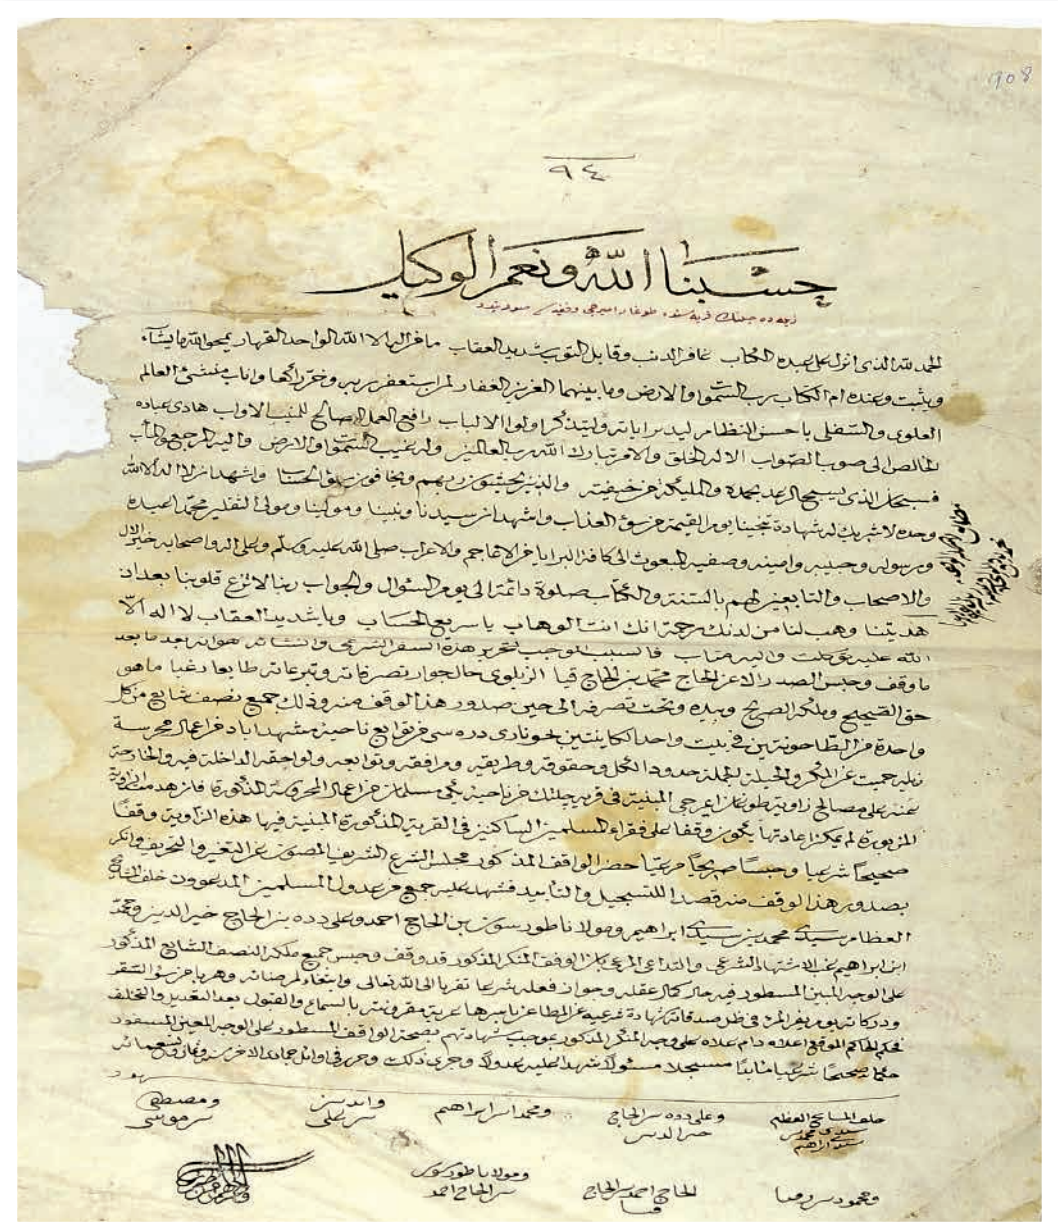 908
٩٤
حسبنا الله ونعم الوكيل
الحمد لله الذى انزل على عبده الكتاب غافر الذنب وقابل التوب شديد العقاب ما من اله الا الله الواحد القهار يمحو الله ما يشآء
ويثبت وعنده ام الكتاب رب السموات والارض وما بينهما العزيز الغفار لمن استغفر ربه وخر راكعا واناب منشئ العالم
العلوى والسفلى باحسن النظام ليدبروا آياته وليتذكر اولوا الالباب رافع العمل الصالح للمنيب الاواب هادى عباده
الخالص الى صوب الصواب الا له الخلق والامر تبارك الله رب العالمين وله غيب السموات والارض واليه المرجع والمآب
فسبحان الذى يسبح الرعد بحمده والمليكة من خيفته والذين يخشون ربهم ويخافون سوء الحساب واشهد ان لا اله الا الله
وحده لا شريك له شهادة تنجينا يوم القيمة من سوء العذاب واشهد ان سيدنا ونبينا ومولينا ومولى الثقلين محمدا عبده
ورسوله وحبيبه وامينه وصفيه المبعوث الى كافة البرايا من الاعاجم والاعراب صلى الله عليه وسلم وعلى اله واصحابه خير الال
والاصحاب والتابعين لهم بالسنة والكتاب صلوة دائمة الى يوم السئوال والجواب ربنا لا تزغ قلوبنا بعد اذ
هديتنا وهب لنا من لدنك رحمة انك انت الوهاب يا سريع الحساب ويا شديد العقاب لا اله الا
الله عليه توكلت واليه متاب فالسبب الموجب لتحرير هذه السفر الشرعى وانشائه هو انه بعد ما بعد
ما وقف وحبس الصدر الاعز الحاج محمد بن الحاج قيا حال جواز تصرفاته وتبرعاته طايعا رغبا ما هو
حق الصحيح وملكه الصريح وبيده وتحت تصرفه الى حين صدور هذا الوقف منه وذلك جميع نصف شايع من كل
واحدة من الطاحونتين فى بيت واحد الكاينتين دره سى من توابع ناحية من اعمال محروسة
حميت عن المكر والحيلة بجملة حدود الكل وحقوقه وطريقه ومرافقه وتوابعه ولواحقه الداخلة فيه والخارجة
عنه على مصالح زاوية المبنية فى قرية من ناحية من اعمال المحروسة المذكورة فان هدمت الزاوية
المزبورة لم يمكن اعادتها يكون وقفا على فقراء المسلمين الساكنين فى القرية المذكورة المبنية فيها هذه الزاوية وقفا
صحيحا شرعيا وحبسا صريحا مرعيا حضر الواقف المذكور مجلس الشرع الشريف المصون عن التغيير والتحريف وانكر
بصدور هذا الوقف منه قصدا للتسجيل والتأبيد فشهد عليه جمع من عدول المسلمين المدعوون خلف المشايخ
العظام سيدى محمد بن سيدى ابراهيم ومولانا طورسون بن الحاج احمد وعلى دده بن الحاج خير الدين ومحمد
ابن ابراهيم الاشهاد الشرعى والتداعى المرعى بان الواقف المنكر المذكور قد وقف وحبس جميع ملكه النصف الشايع المذكور
على الوجه المبين المسطور فيه حال كمال عقله وجواز فعله شرعا تقربا الى الله تعالى وابتغاء لمرضاته وهربا من سوء السقر
ودركاته يوم يفر المرء فى ظل صدقاته شهادة شرعية عن المطاعن باسرها عرية مقرونة بالسماع والقبول بعد التعديل
فحكم الحاكم الموقع اعلاه دام علاه على وجه المنكر المذكور بموجب شهادتهم بصحة الواقف المسطور على الوجه المعين
حكما صحيحا شرعيا مسجلا مسئولا شهدا عليه عدولا وجرى ذلك وحرر فى اوائل جمادى الاخر سنة
شهود
خلف المشايخ العظام
سيدى محمد بن
سيد ابراهيم
وعلى دده بن الحاج
خير الدين
ومحمد بن ابراهيم
بن على
ومصطفى
بن موسى
ومحمود بن
الحاج احمد بن الحاج
قيا
ومولانا طورسون
بن الحاج احمد